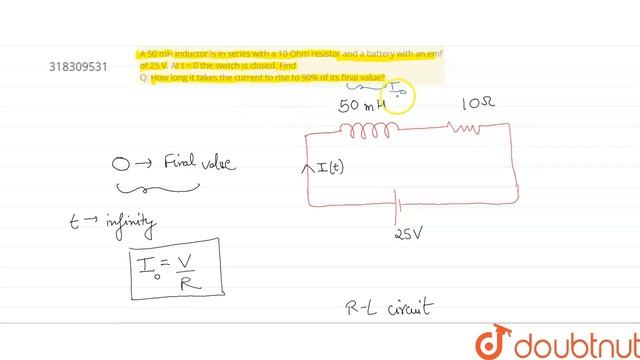 318309531
A 50 mH inductor is in series with a 10 Ohm resistor and a battery with an emf
of 25 V. At t = 0 the switch is closed. Find
Q: How long it takes the current to rise to 90% of its final value?
I₀
50 mH
10Ω
O → Final value
I(t)
t → infinity
25V
I₀ = V/R
R-L circuit
doubtnut